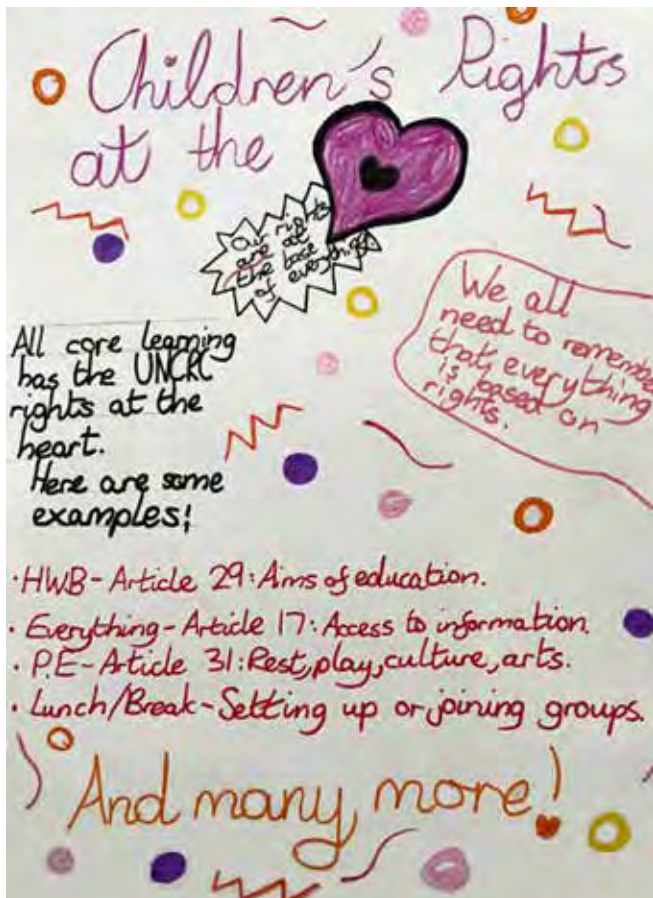 Children's Rights
at the
Our rights
are at
the base
of everything!
We all
need to remember
that, everything
is based on
rights.
All core learning
has the UNCRC
rights at the
heart.
Here are some
examples!
· HWB - Article 29: Aims of education.
· Everything - Article 17: Access to information.
· P.E - Article 31: Rest, play, culture, arts.
· Lunch/Break - Setting up or joining groups.
And many more!